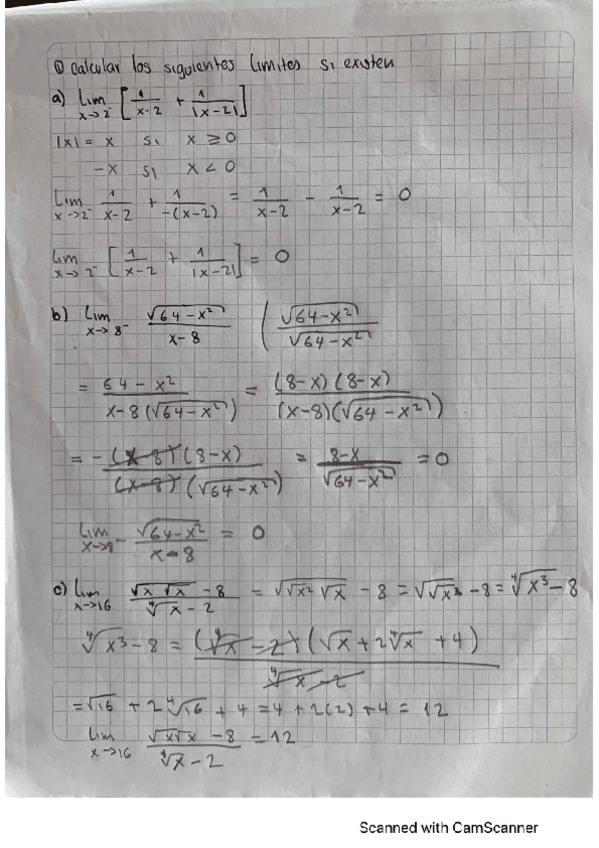 ① Calcular los siguientes limites si existen
a) Lim x→2⁻ [1/(x-2) + 1/|x-2|]
|x| = x si x ≥ 0
-x si x < 0
Lim x→2⁻ 1/(x-2) + 1/(-(x-2)) = 1/(x-2) - 1/(x-2) = 0
Lim x→2⁻ [1/(x-2) + 1/|x-2|] = 0
b) Lim x→8⁻ √(64-x²)/(x-8) (√(64-x²)/√(64-x²)
= (64-x²)/(x-8(√(64-x²))) = (8-x)(8-x)/((x-8)(√(64-x²)))
= -(x-8)(8-x)/((x-8)(√(64-x²))) = (8-x)/√(64-x²) = 0
Lim x→8⁻ √(64-x²)/(x-8) = 0
c) Lim x→16 (√x √√x - 8)/(⁴√x - 2) = √√x² √x - 8 = √√x³ - 8 = ⁴√x³ - 8
⁴√x³ - 8 = (⁴√x - 2)(√x + 2⁴√x + 4)/(⁴√x - 2)
= √16 + 2⁴√16 + 4 = 4 + 2(2) + 4 = 12
Lim x→16 (√x√x - 8)/(⁴√x - 2) = 12
Scanned with CamScanner